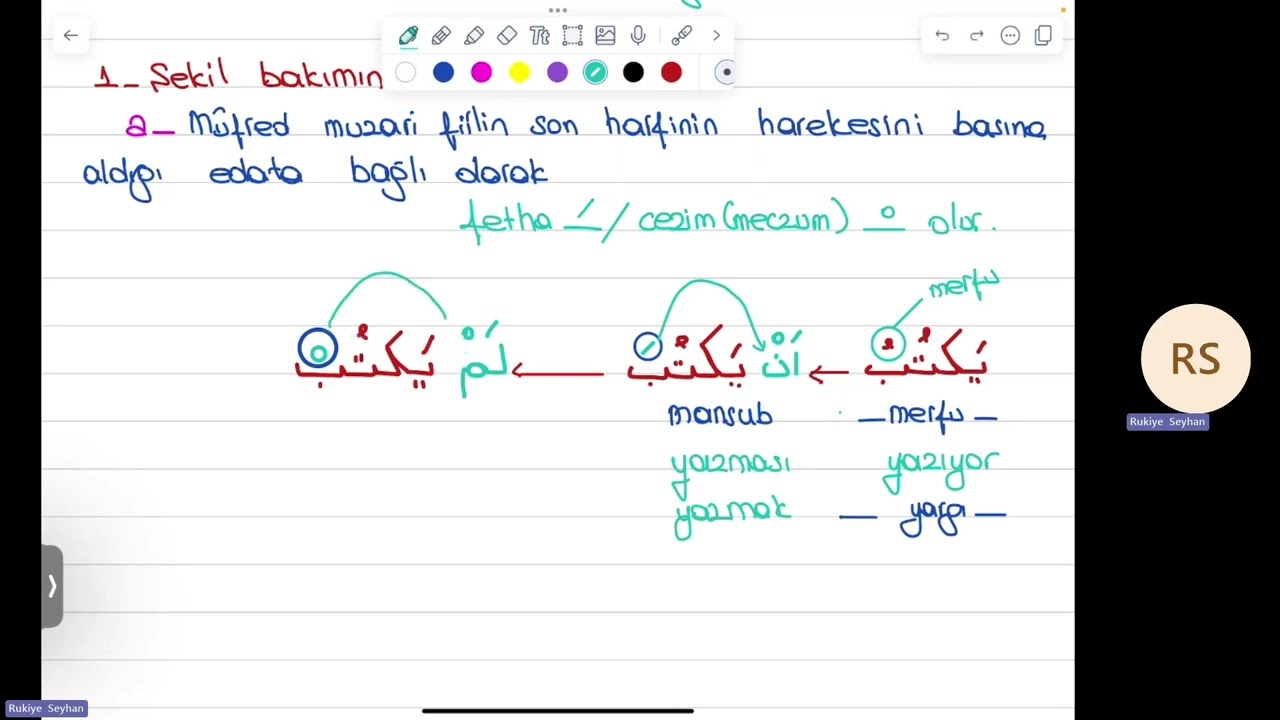 1- Şekil bakımın
a- Müfred muzari fiilin son harfinin harekesini başına
aldığı edata bağlı olarak
fetha َ / cezim (meczum) ْ olur.
merfu
يَكْتُبُ ← أَنْ يَكْتُبَ ← لَمْ يَكْتُبْ
mansub — merfu —
yazması yazıyor
yazmak — yargı —
Tt
RS
Rukiye Seyhan
Rukiye Seyhan